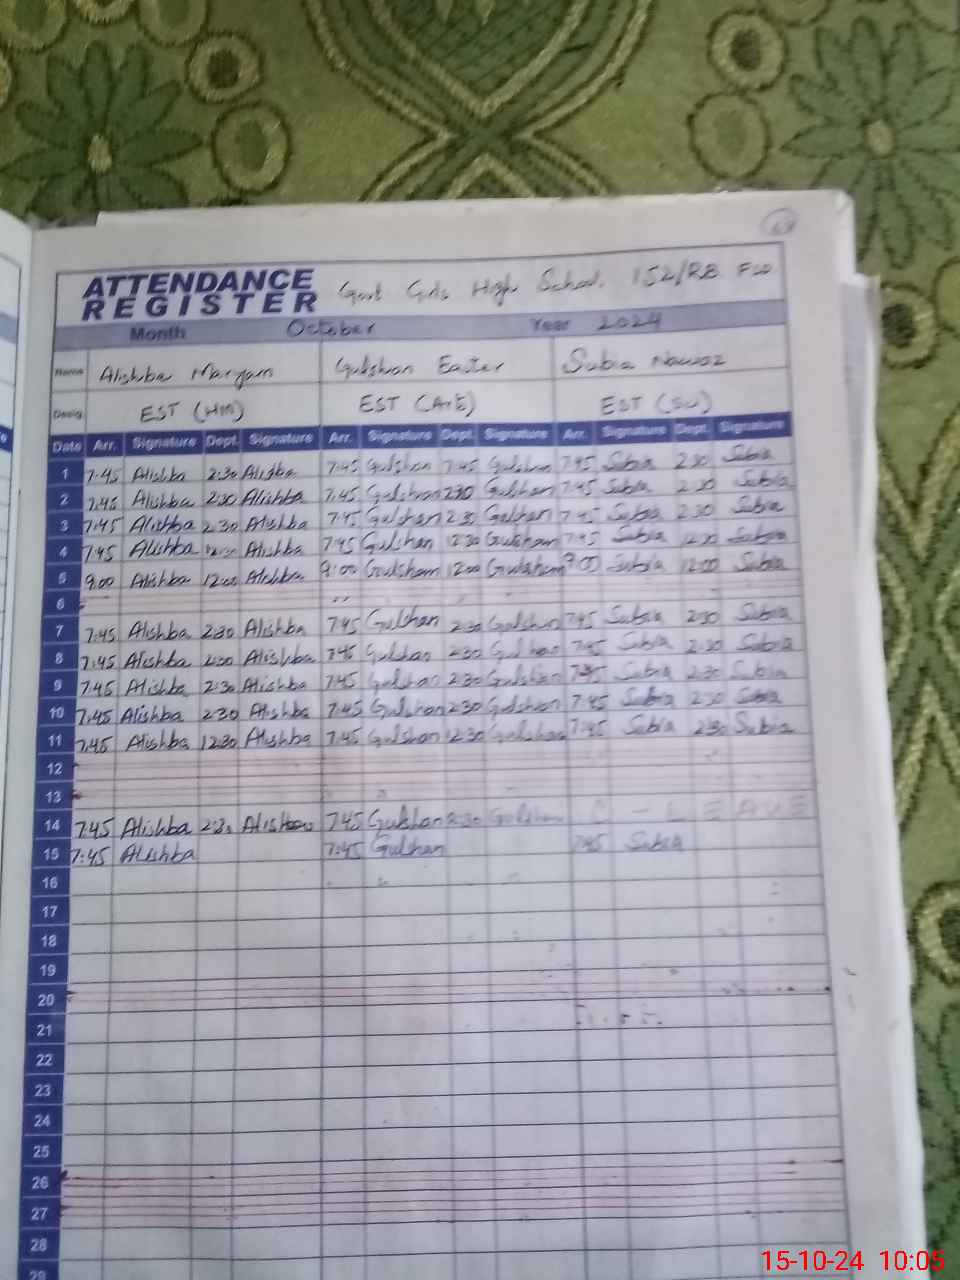 ATTENDANCE
REGISTER Govt Girls High School. 152/RB FSD
Month October Year 2024
Name Alishba Maryam Gulshan Easter Subia Nawaz
Desig. EST (HM) EST (A&E) EST (SU)
Date Arr. Signature Dept. Signature Arr. Signature Dept. Signature Arr. Signature Dept. Signature
1 7:45 Alishba 2:30 Alishba 7:45 Gulshan 7:45 Gulshan 7:45 Subia 2:30 Subia
2 7:45 Alishba 2:30 Alishba 7:45 Gulshan 2:30 Gulshan 7:45 Subia 2:30 Subia
3 7:45 Alishba 2:30 Alishba 7:45 Gulshan 2:30 Gulshan 7:45 Subia 2:30 Subia
4 7:45 Alishba 12:30 Alishba 7:45 Gulshan 12:30 Gulshan 7:45 Subia 12:30 Subia
5 9:00 Alishba 12:00 Alishba 9:00 Gulshan 12:00 Gulshan 9:00 Subia 12:00 Subia
6
7 7:45 Alishba 2:30 Alishba 7:45 Gulshan 2:30 Gulshan 7:45 Subia 2:30 Subia
8 7:45 Alishba 2:30 Alishba 7:45 Gulshan 2:30 Gulshan 7:45 Subia 2:30 Subia
9 7:45 Alishba 2:30 Alishba 7:45 Gulshan 2:30 Gulshan 7:45 Subia 2:30 Subia
10 7:45 Alishba 2:30 Alishba 7:45 Gulshan 2:30 Gulshan 7:45 Subia 2:30 Subia
11 7:45 Alishba 12:30 Alishba 7:45 Gulshan 12:30 Gulshan 7:45 Subia 2:30 Subia
12
13
14 7:45 Alishba 2:30 Alishba 7:45 Gulshan 2:30 Gulshan C - LEAVE
15 7:45 Alishba 7:45 Gulshan 7:45 Subia
16
17
18
19
20
21
22
23
24
25
26
27
28
29
15-10-24 10:05